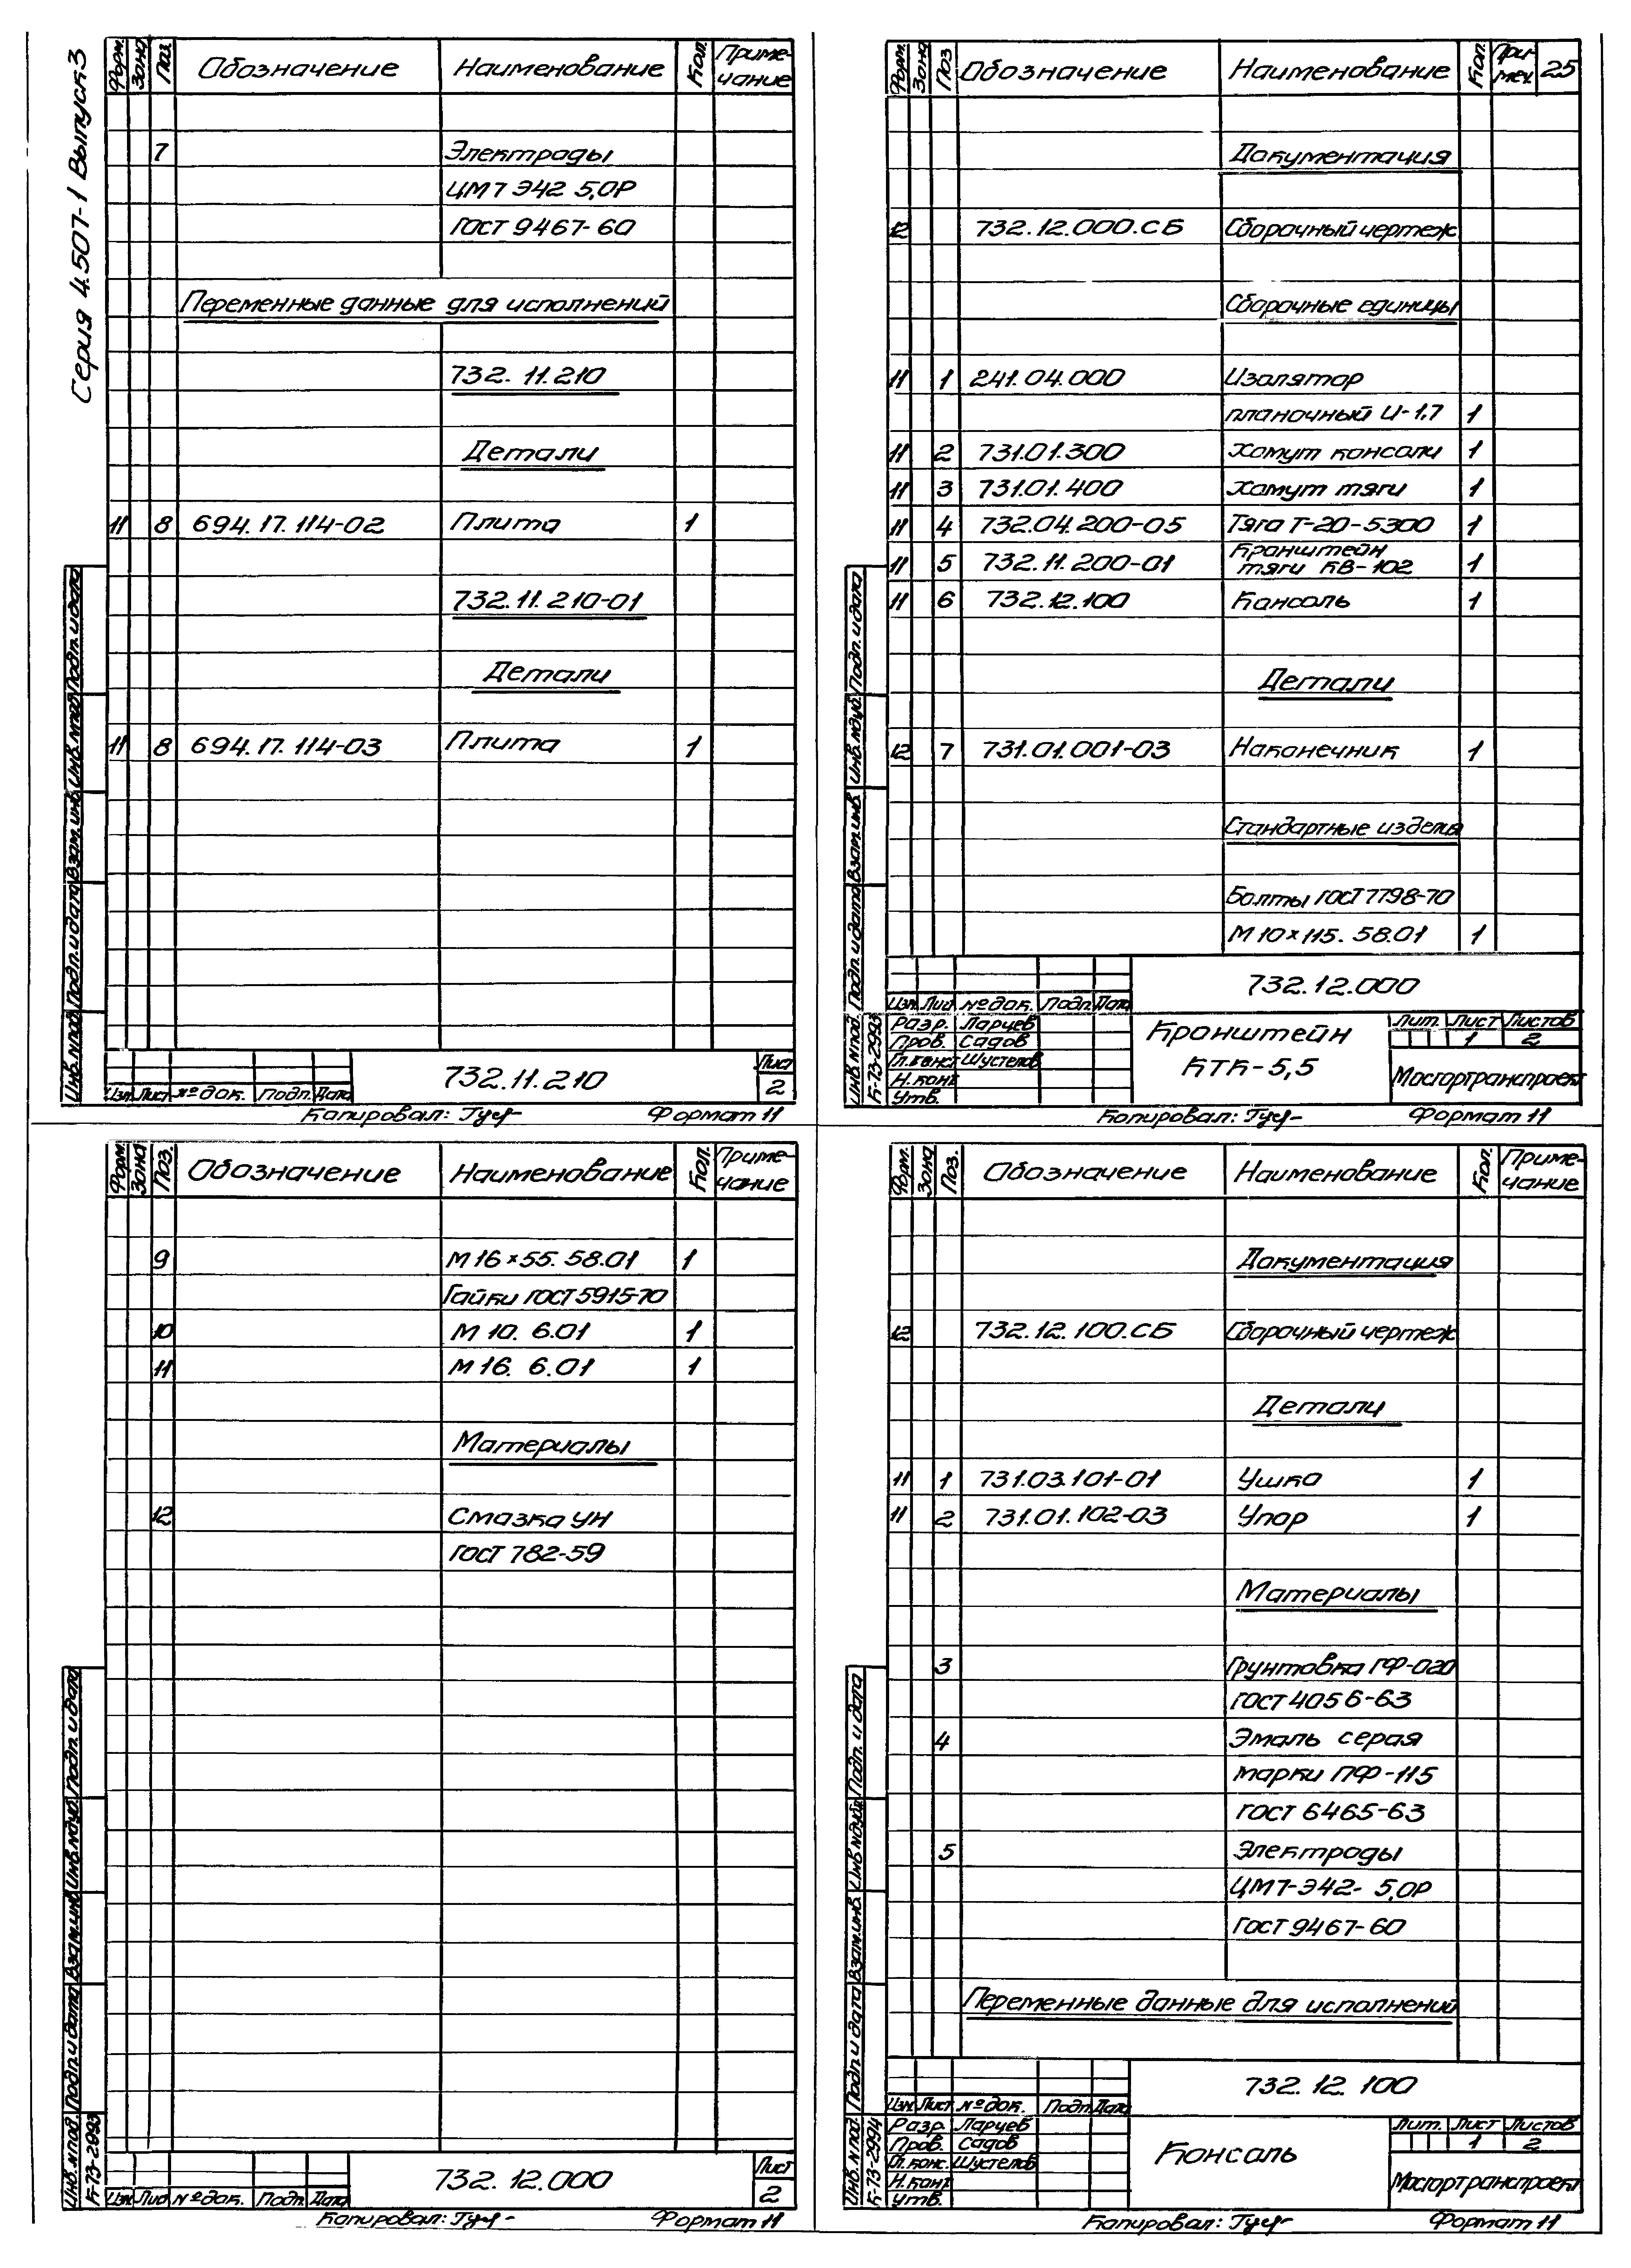 Серия 4.507-1 Выпуск 3
Форм. Зона Поз. Обозначение Наименование Кол. Приме-
чание
7 Электроды
ЦМ7 Э42 5,0Р
ГОСТ 9467-60
Переменные данные для исполнений
732. 11.210
Детали
11 8 694.17.114-02 Плита 1
732.11.210-01
Детали
11 8 694.17.114-03 Плита 1
Инв.№под. Подп. и дата Взам.инв. Инв.№дуб. Подп. и дата
732.11.210
Лист
2
Изм. Лист № док. Подп. Дата
Копировал: Формат 11
Форм. Зона Поз Обозначение Наименование Кол. При-
меч. 25
Документация
12 732.12.000.СБ Сборочный чертеж
Сборочные единицы
11 1 241.04.000 Изолятор
планочный И-1,7 1
11 2 731.01.300 Хомут консоли 1
11 3 731.01.400 Хомут тяги 1
11 4 732.04.200-05 Тяга Т-20-5300 1
11 5 732.11.200-01 Кронштейн
тяги КВ-102 1
11 6 732.12.100 Консоль 1
Детали
12 7 731.01.001-03 Наконечник 1
Стандартные изделия
Болты ГОСТ 7798-70
М10×115. 58.01 1
Инв.№под. Подп. и дата Взам.инв. Инв.№дуб. Подп. и дата
К-73-2993
732.12.000
Изм. Лист № док. Подп. Дата
Разр. Ларчев
Пров. Садов
Гл.конс. Шустелов
Н.конт
Утв.
Кронштейн
КТК-5,5
Лит. Лист Листов
1 2
Мосгортранспроект
Копировал: Формат 11
Форм. Зона Поз. Обозначение Наименование Кол. Приме-
чание
9 М16×55. 58.01 1
Гайки ГОСТ 5915-70
10 М 10. 6.01 1
11 М 16. 6.01 1
Материалы
12 Смазка УН
ГОСТ 782-59
Инв.№под. Подп. и дата Взам.инв. Инв.№дуб. Подп. и дата
К-73-2993
732.12.000
Лист
2
Изм. Лист № док. Подп. Дата
Копировал: Формат 11
Форм. Зона Поз. Обозначение Наименование Кол. Приме-
чание
Документация
12 732.12.100.СБ Сборочный чертеж
Детали
11 1 731.03.101-01 Ушко 1
11 2 731.01.102-03 Упор 1
Материалы
3 Грунтовка ГФ-020
ГОСТ 4056-63
4 Эмаль серая
марки ПФ-115
ГОСТ 6465-63
5 Электроды
ЦМ7-Э42- 5,0Р
ГОСТ 9467-60
Переменные данные для исполнений
Инв.№под. Подп. и дата Взам.инв. Инв.№дубл. Подп. и дата
К-73-2994
732.12.100
Изм. Лист № док. Подп. Дата
Разр. Ларчев
Пров. Садов
Гл.конс. Шустелов
Н.конт
Утв.
Консоль
Лит. Лист Листов
1 2
Мосгортранспроект
Копировал: Формат 11